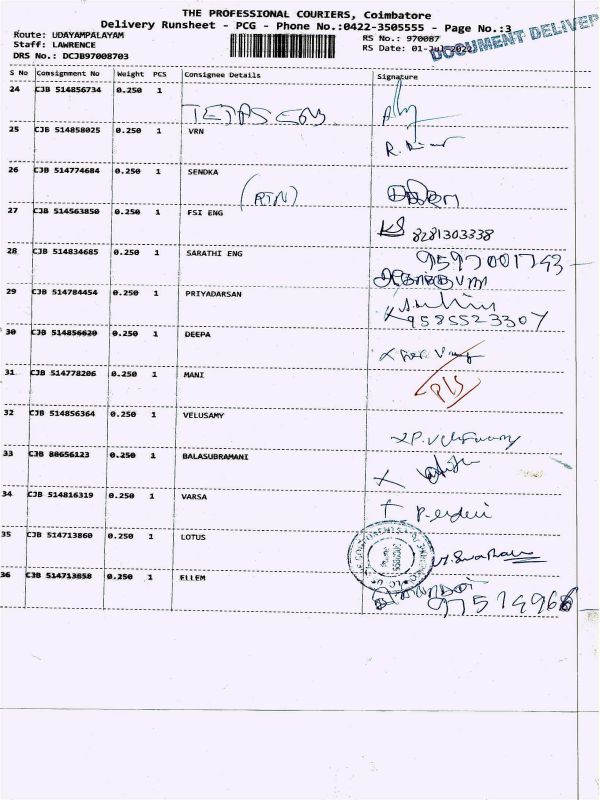 THE PROFESSIONAL COURIERS, Coimbatore
Delivery Runsheet - PCG - Phone No.:0422-3505555 - Page No.:3
Route: UDAYAMPALAYAM
RS No.: 970087
Staff: LAWRENCE
RS Date: 01-Jul-2022
DOCUMENT DELIVER
DRS No.: DCJB97008703
S No Consignment No Weight PCS Consignee Details Signature
24 CJB 514856734 0.250 1
TEJAS ENG.
25 CJB 514858025 0.250 1 VRN
26 CJB 514774684 0.250 1 SENDKA
(RTN)
27 CJB 514563850 0.250 1 FSI ENG
KS 8281303338
28 CJB 514834685 0.250 1 SARATHI ENG
9597001743
29 CJB 514784454 0.250 1 PRIYADARSAN
9585523307
30 CJB 514856620 0.250 1 DEEPA
31 CJB 514778206 0.250 1 MANI
32 CJB 514856364 0.250 1 VELUSAMY
33 CJB 88656123 0.250 1 BALASUBRAMANI
34 CJB 514816319 0.250 1 VARSA
35 CJB 514713860 0.250 1 LOTUS
36 CJB 514713858 0.250 1 ELLEM